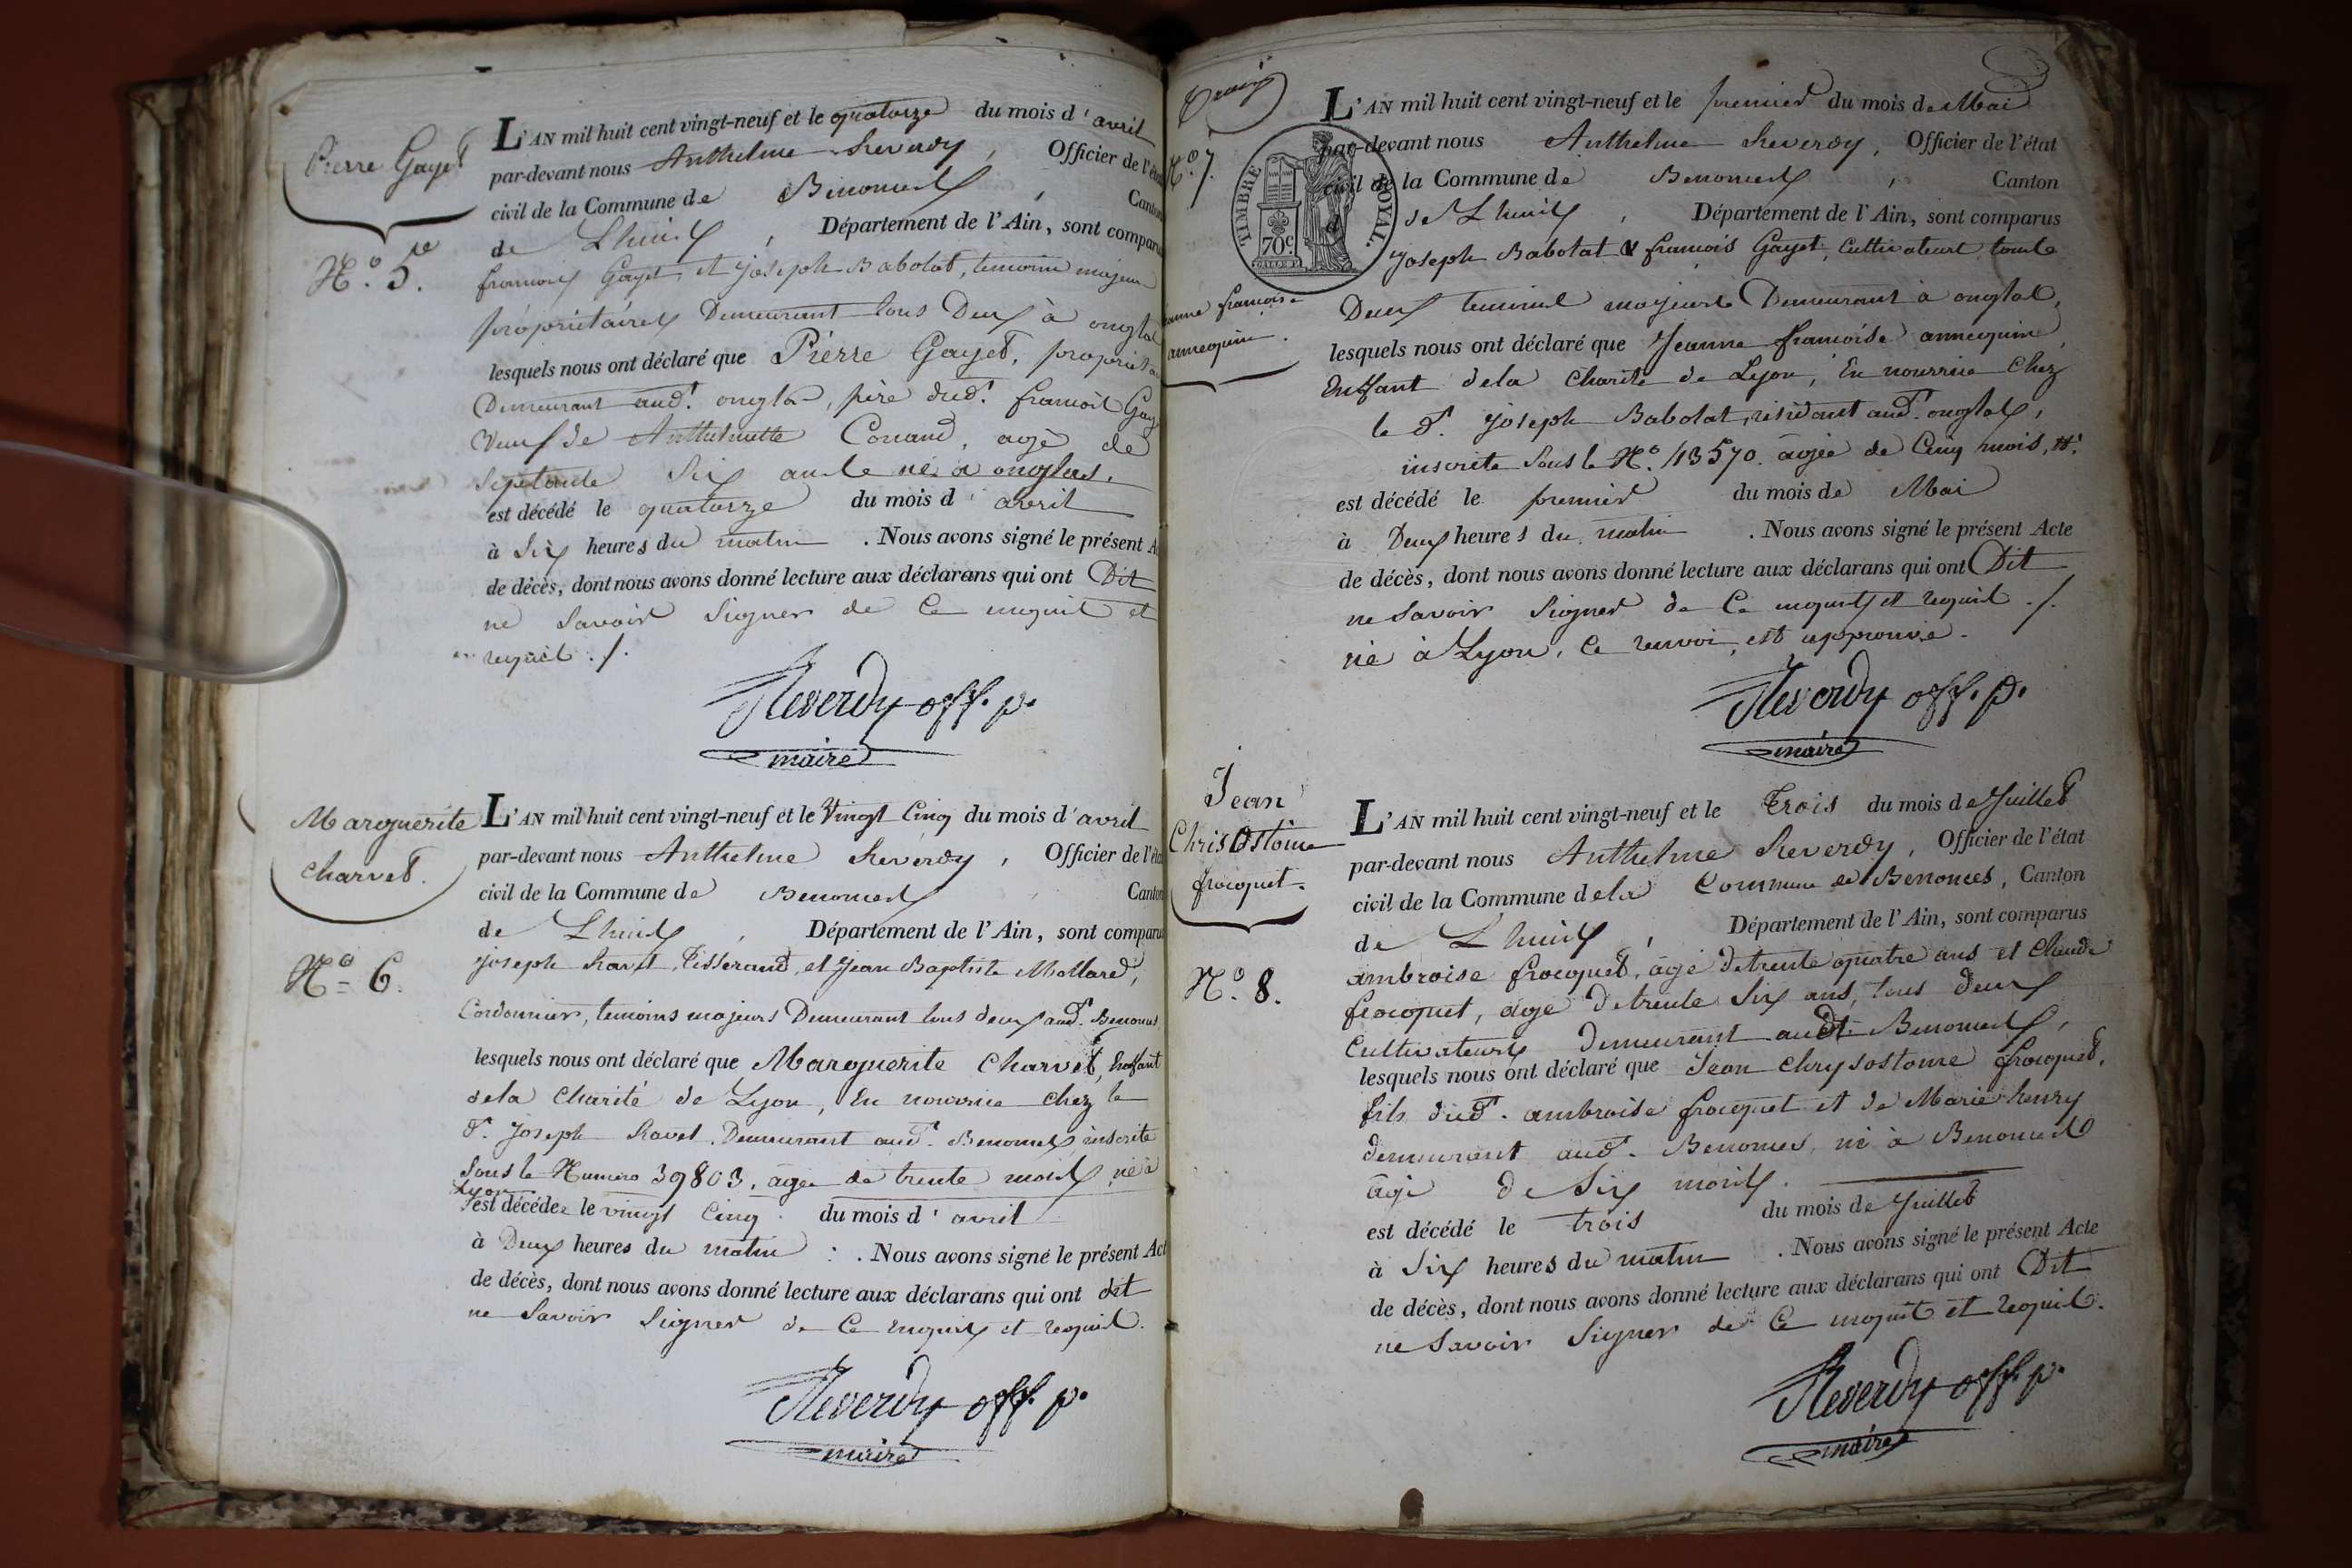 Pierre Gayet
N.o 5.e
L'AN mil huit cent vingt-neuf et le quatorze du mois d'avril
par-devant nous Anthelme Reverdy, Officier de l'état
civil de la Commune de Benonces, Canton
de Lhuis, Département de l'Ain, sont comparus
francois Gayet, et joseph Babolat, temoins majeurs
propriétaires Demeurant tous Deux à onglas
lesquels nous ont déclaré que Pierre Gayet, propriet
Demeurant aud.t onglas, père dud.t francois Gayet
Veuf de Anthelmette Conand, agé de
Septante Six ans né à onglas.
est décédé le quatorze du mois d'avril
à Six heures du matin. Nous avons signé le présent A
de décès, dont nous avons donné lecture aux déclarans qui ont Dit
ne Savoir Signer de Ce enquit et
requit ./.
Reverdy off. p.
maire
Marguerite
charvet.
N.o 6.
L'AN mil huit cent vingt-neuf et le Vingt Cinq du mois d'avril
par-devant nous Anthelme Reverdy, Officier de l'état
civil de la Commune de Benonces Canton
de Lhuis, Département de l'Ain, sont comparus
joseph Ravet, Tisserand, et Jean Baptiste Mollard,
Cordonnier, temoins majeurs Demeurant tous deux aud.t Benonces
lesquels nous ont déclaré que Marguerite Charvet, Enffant
dela Charité de Lyon, En nourrice chez le
S.r Joseph Ravet, Demeurant aud.t Benonces, inscrite
Sous le Numero 39803, agée de trente mois, né à
Lyon
est décédée le vingt Cinq du mois d'avril
à Deux heures du matin. Nous avons signé le présent Act
de décès, dont nous avons donné lecture aux déclarans qui ont dit
ne Savoir Signer de Ce enquis et requit.
Reverdy off. p.
maire
N.o 7.
TIMBRE ROYAL.
70c.
anne francoise
annequin.
L'AN mil huit cent vingt-neuf et le premier du mois de Mai
par-devant nous Anthelme Reverdy, Officier de l'état
civil de la Commune de Benonces, Canton
de Lhuis, Département de l'Ain, sont comparus
Joseph Babolat & francois Gayet, Cultivateurs tous
Deux temoins majeurs Demeurant à onglas,
lesquels nous ont déclaré que Jeanne francoise annequin,
Enffant dela Charité de Lyon, En nourrice Chez
le S.r joseph Babolat, résidant aud.t onglas,
inscrite Sous le N.o 43570. agée de Cinq mois, #.
est décédé le premier du mois de Mai
à Deux heures du matin. Nous avons signé le présent Acte
de décès, dont nous avons donné lecture aux déclarans qui ont Dit
ne Savoir Signer de Ce enquis et requit ./.
né à Lyon, Ce renvoi est approuvé.
Reverdy off. p.
maire
Jean
Chrisostome
frocquet.
N.o 8.
L'AN mil huit cent vingt-neuf et le Trois du mois de Juillet
par-devant nous Anthelme Reverdy, Officier de l'état
civil de la Commune dela Commune de Benonces, Canton
de Lhuis, Département de l'Ain, sont comparus
ambroise frocquet, âgé de trente quatre ans et Claude
frocquet, agé de trente Six ans, tous deux
Cultivateurs Demeurant audt. Benonces,
lesquels nous ont déclaré que Jean Chrysostome frocquet,
fils dud.t ambroise frocquet et de Marie henry
demeurant aud.t Benonces, né à Benonces
âgé de Six mois.
est décédé le trois du mois de Juillet
à Six heures du matin. Nous avons signé le présent Acte
de décès, dont nous avons donné lecture aux déclarans qui ont Dit
ne Savoir Signer de Ce enquit et requit.
Reverdy off. p.
maire